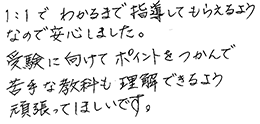 1:1で わかるまで指導してもらえるよう
なので安心しました。
受験に向けて ポイントをつかんで
苦手な教科も 理解できるよう
頑張ってほしいです。